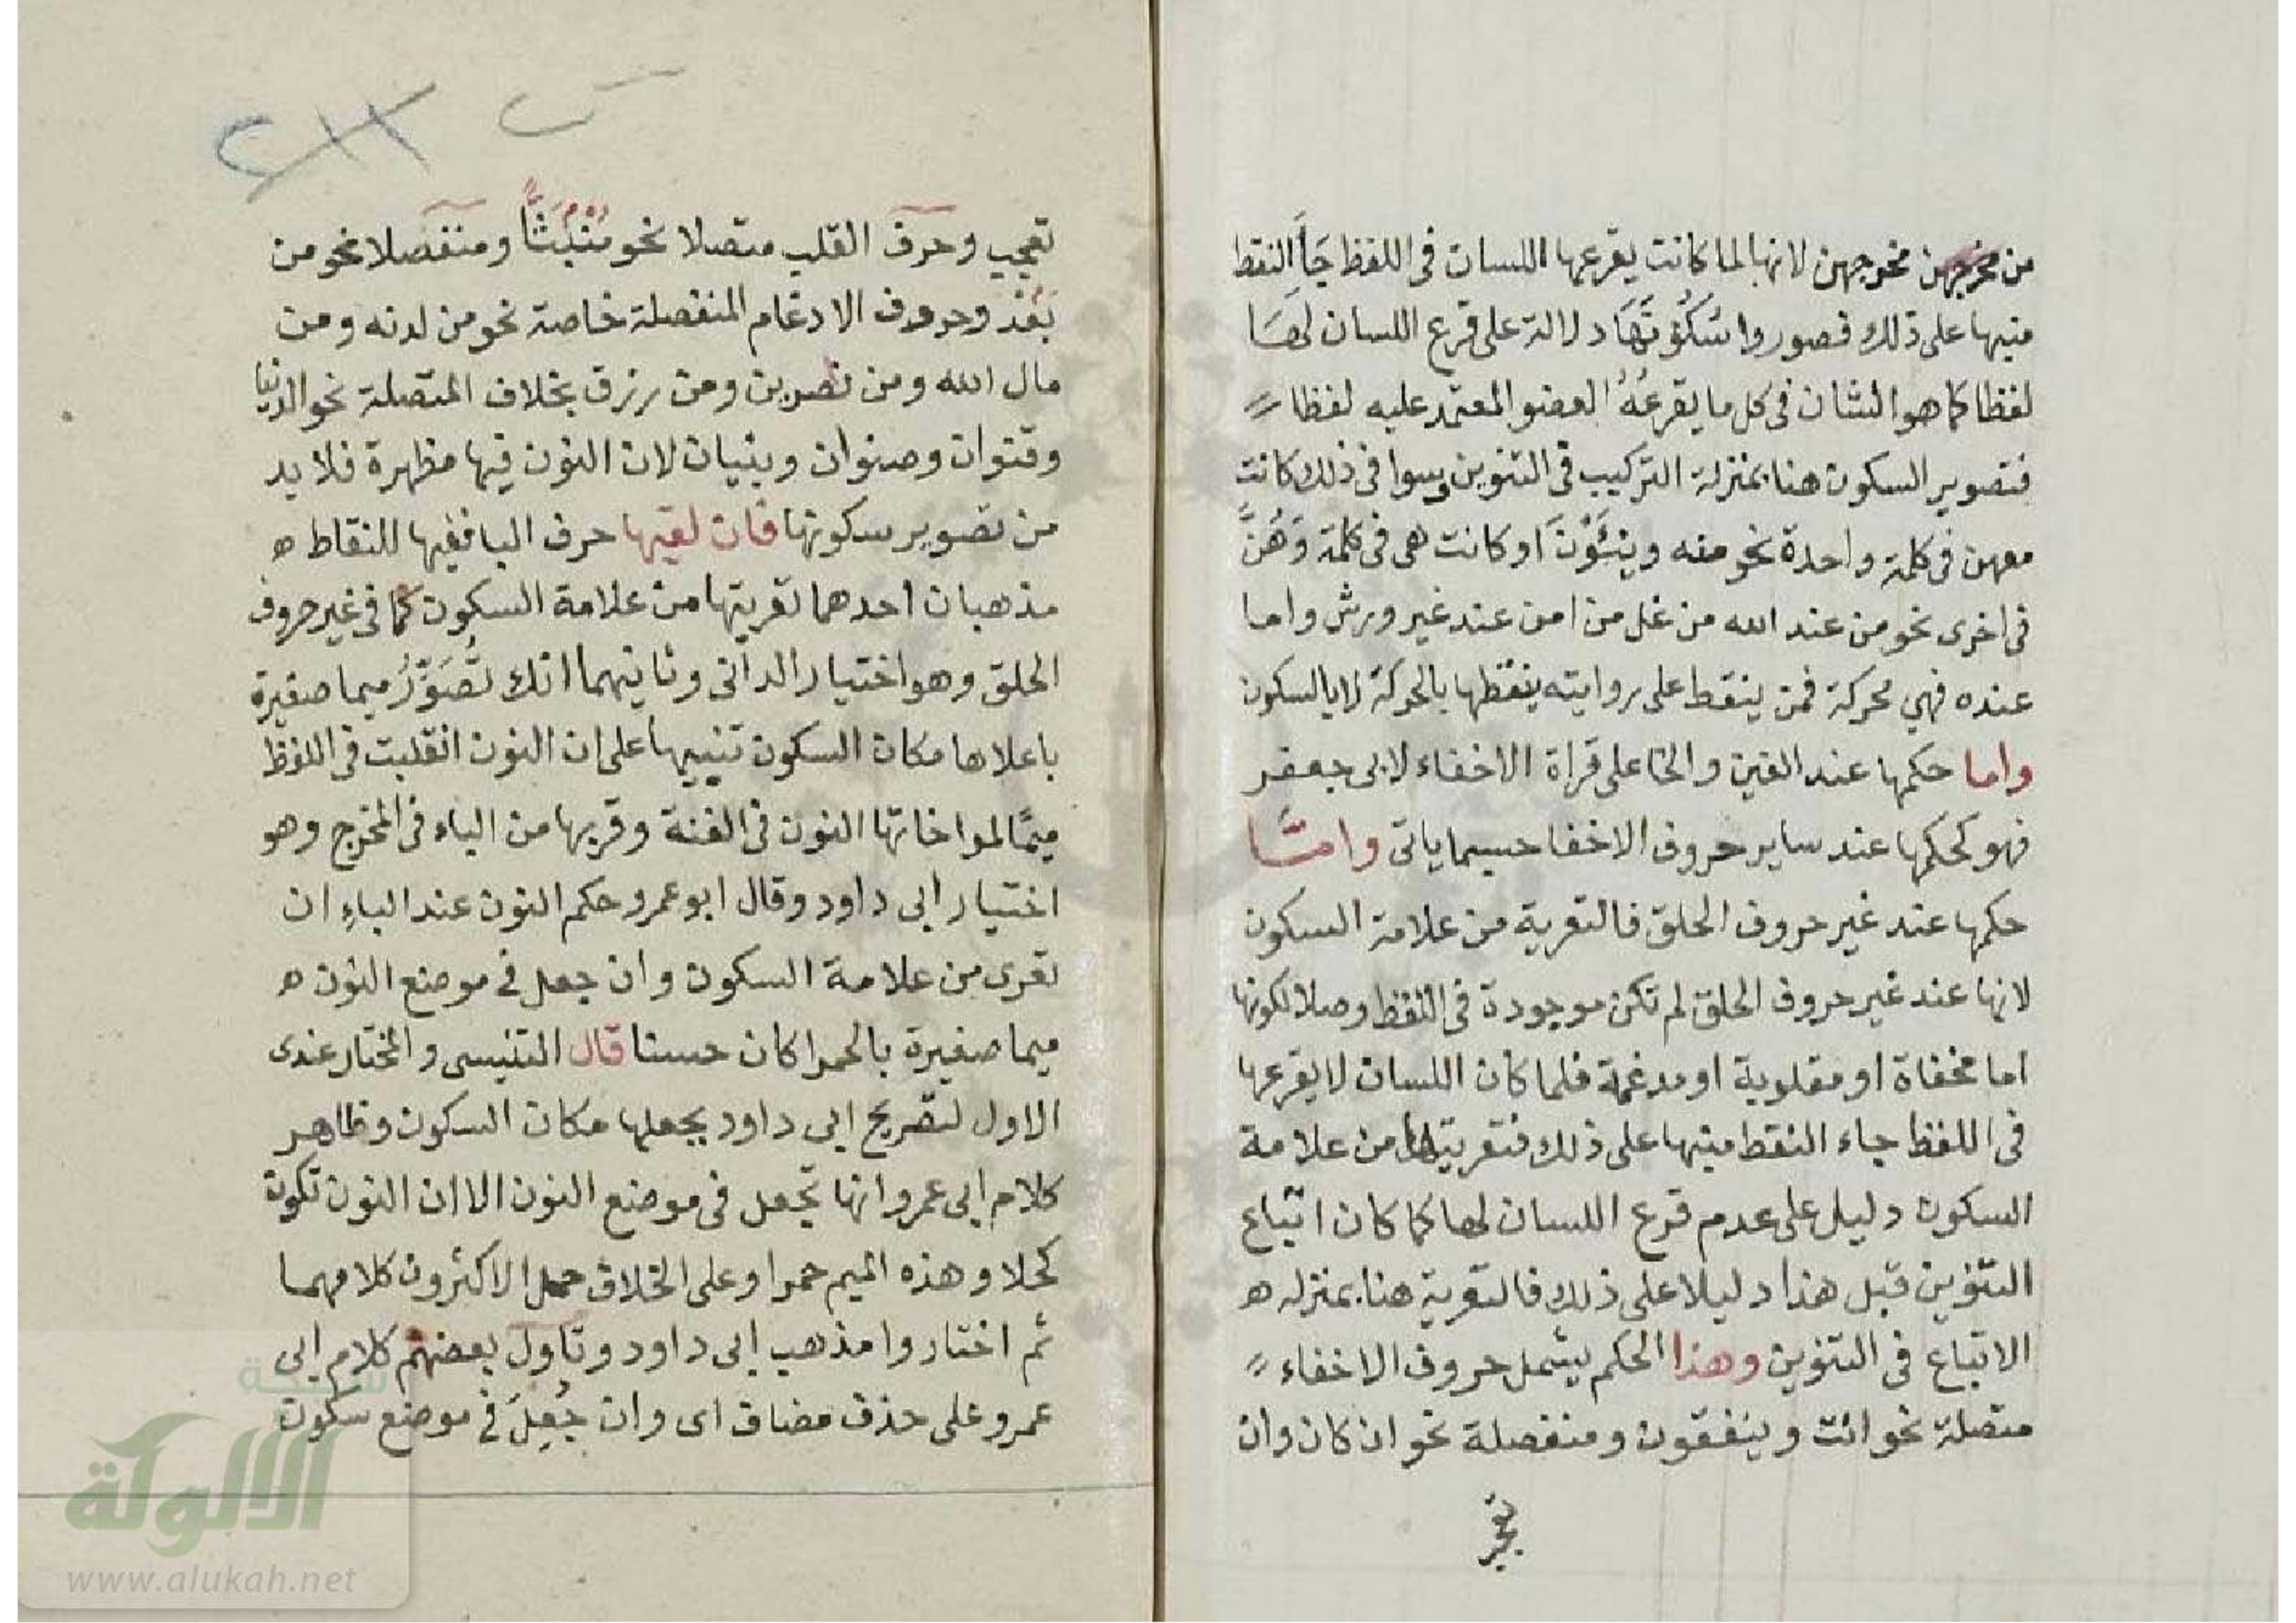 من مخرجهن مخرجهن لانها لما كانت يقرعها اللسان فى اللفظ جَاَ النقط
منبها على ذلك فصوروا سُكُوْنَهَا دلالة على قرع اللسان لهَا
لفظا كما هو الشان فى كل ما يقرعُهُ العضو المعتمد عليه لفظا
فتصوير السكون هنا بمنزلة التركيب فى التنوين وسوا فى ذلك كانت
معهن فى كلمة واحدة نحو منه وينئَوْنَ او كانت هى فى كلمة وَهُنَّ
فى اخرى نحو من عند الله من غل من امن عند غير ورش واما
عنده فهي محركة فمن ينقط على روايته ينقطها بالحركة لا بالسكون
واما حكمها عند الغين والخا على قراة الاخفاء لابى جعفر
فهو كحكمها عند ساير حروف الاخفا حسبما ياتى وامَّا
حكمها عند غير حروف الحلق فالتعرية من علامة السكون
لانها عند غير حروف الحلق لم تكن موجودة فى اللفظ وصلا لكونها
اما مخفاة او مقلوبة او مدغمة فلما كان اللسان لا يقرعها
فى اللفظ جاء النقط مبنها على ذلك فتعريتها من علامة
السكون دليل على عدم قرع اللسان لها كما كان اتباع
التنوين قبل هذا دليلا على ذلك فالتعرية هنا بمنزله ه
الاتباع فى التنوين وهذا الحكم يشمل حروف الاخفاء
متصلة نحو انت وينفقون ومنفصلة نحو ان كان وان
تعجب
تعجب وحرف القلب متصلا نحو مُنْبَثًّا ومنفصلا نحو من
بَعْد وحروف الادغام المنفصلة خاصة نحو من لدنه ومن
مال الله ومن نصرين ومن رزق بخلاف المتصلة نحو الدنيا
وقنوان وصنوان وبنيان لان النون فيها مظهرة فلا بد
من تصوير سكونها فان لقيها حرف البا ففيها للنقاط ه
مذهبان احدهما تعريتها من علامة السكون كما فى غير حروف
الحلق وهو اختيار الدانى وثانيهما انك تُصَوِّرُ ميما صغيرة
باعلاها مكان السكون تنبيها على ان النون انقلبت فى اللفظ
ميمًا لمواخاتها النون فى الغنة وقربها من الباء فى المخرج وهو
اختيار ابى داود وقال ابو عمرو حكم النون عند الباءِ ان
تعرى من علامة السكون وان جعل فى موضع النون ه
ميما صغيرة بالحمرا كان حسنا قال التنيسى والمختار عندى
الاول لتصريح ابى داود بجعلها مكان السكون وظاهر
كلام ابى عمرو انها تجعل فى موضع النون الا ان النون تكون
كحلا وهذه الميم حمرا وعلى الخلاف حمل الاكثرون كلامهما
ثم اختاروا مذهب ابى داود وتاول بعضهم كلام ابى
عمرو على حذف مضاف اى وان جُعِلَ فى موضع سكون
شبكة
الألوكة
www.alukah.net